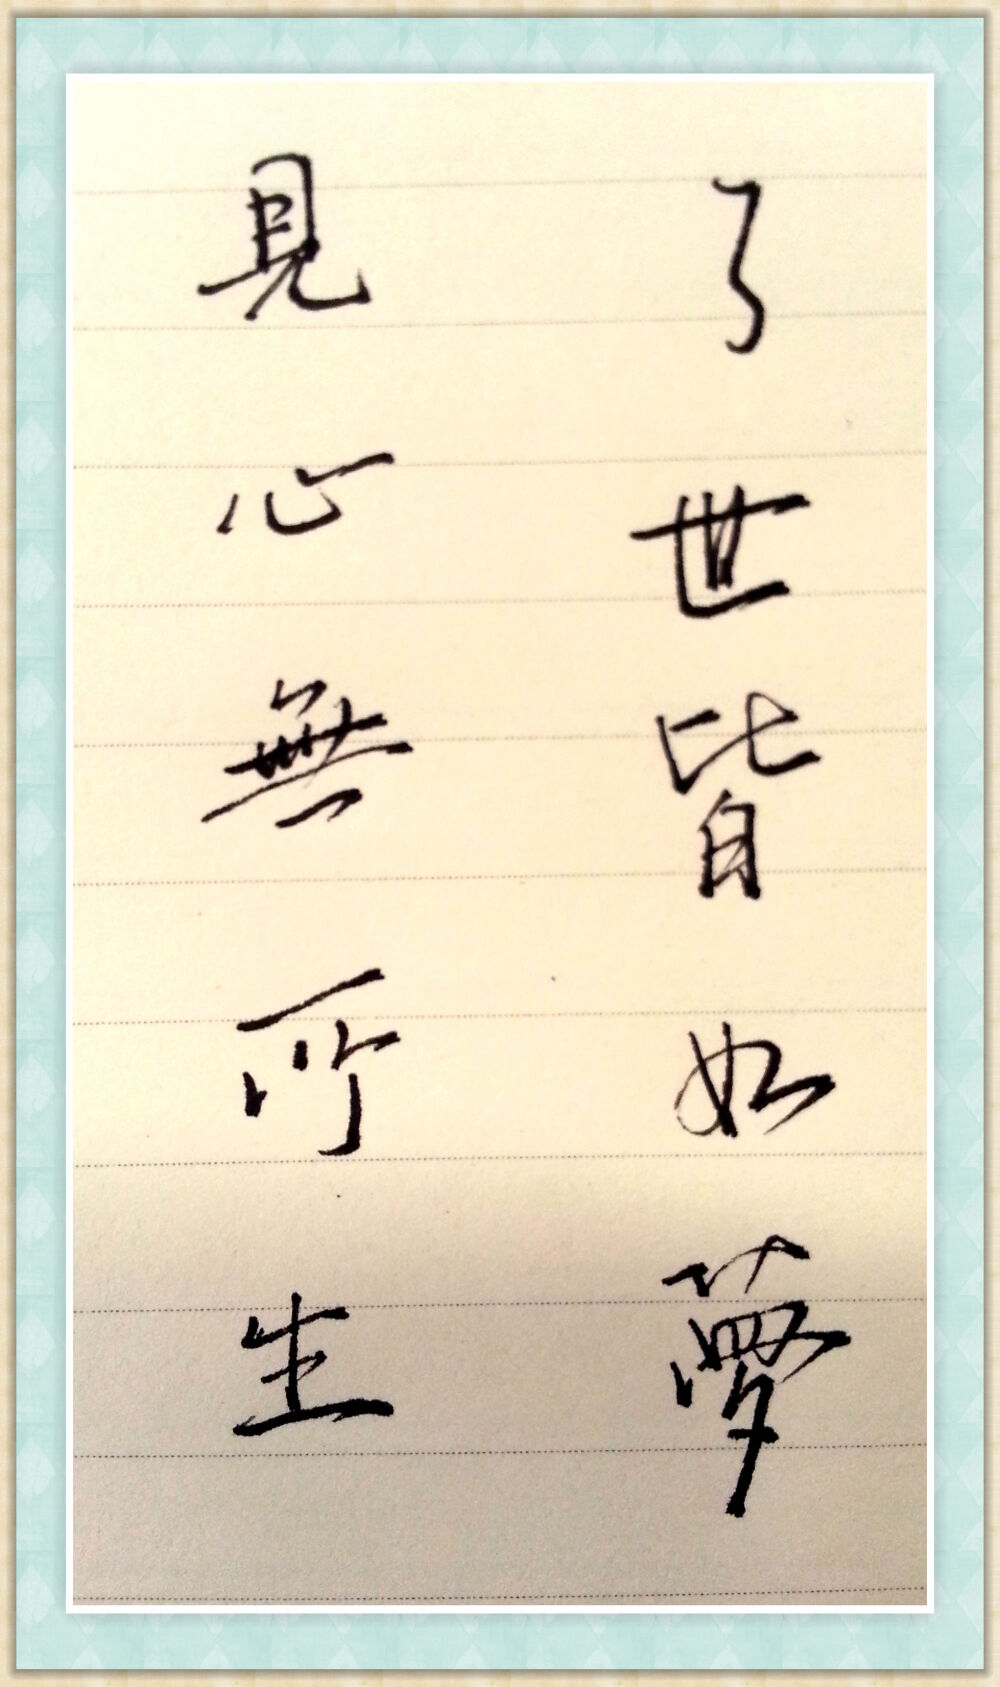 了世皆如夢
見心無所生